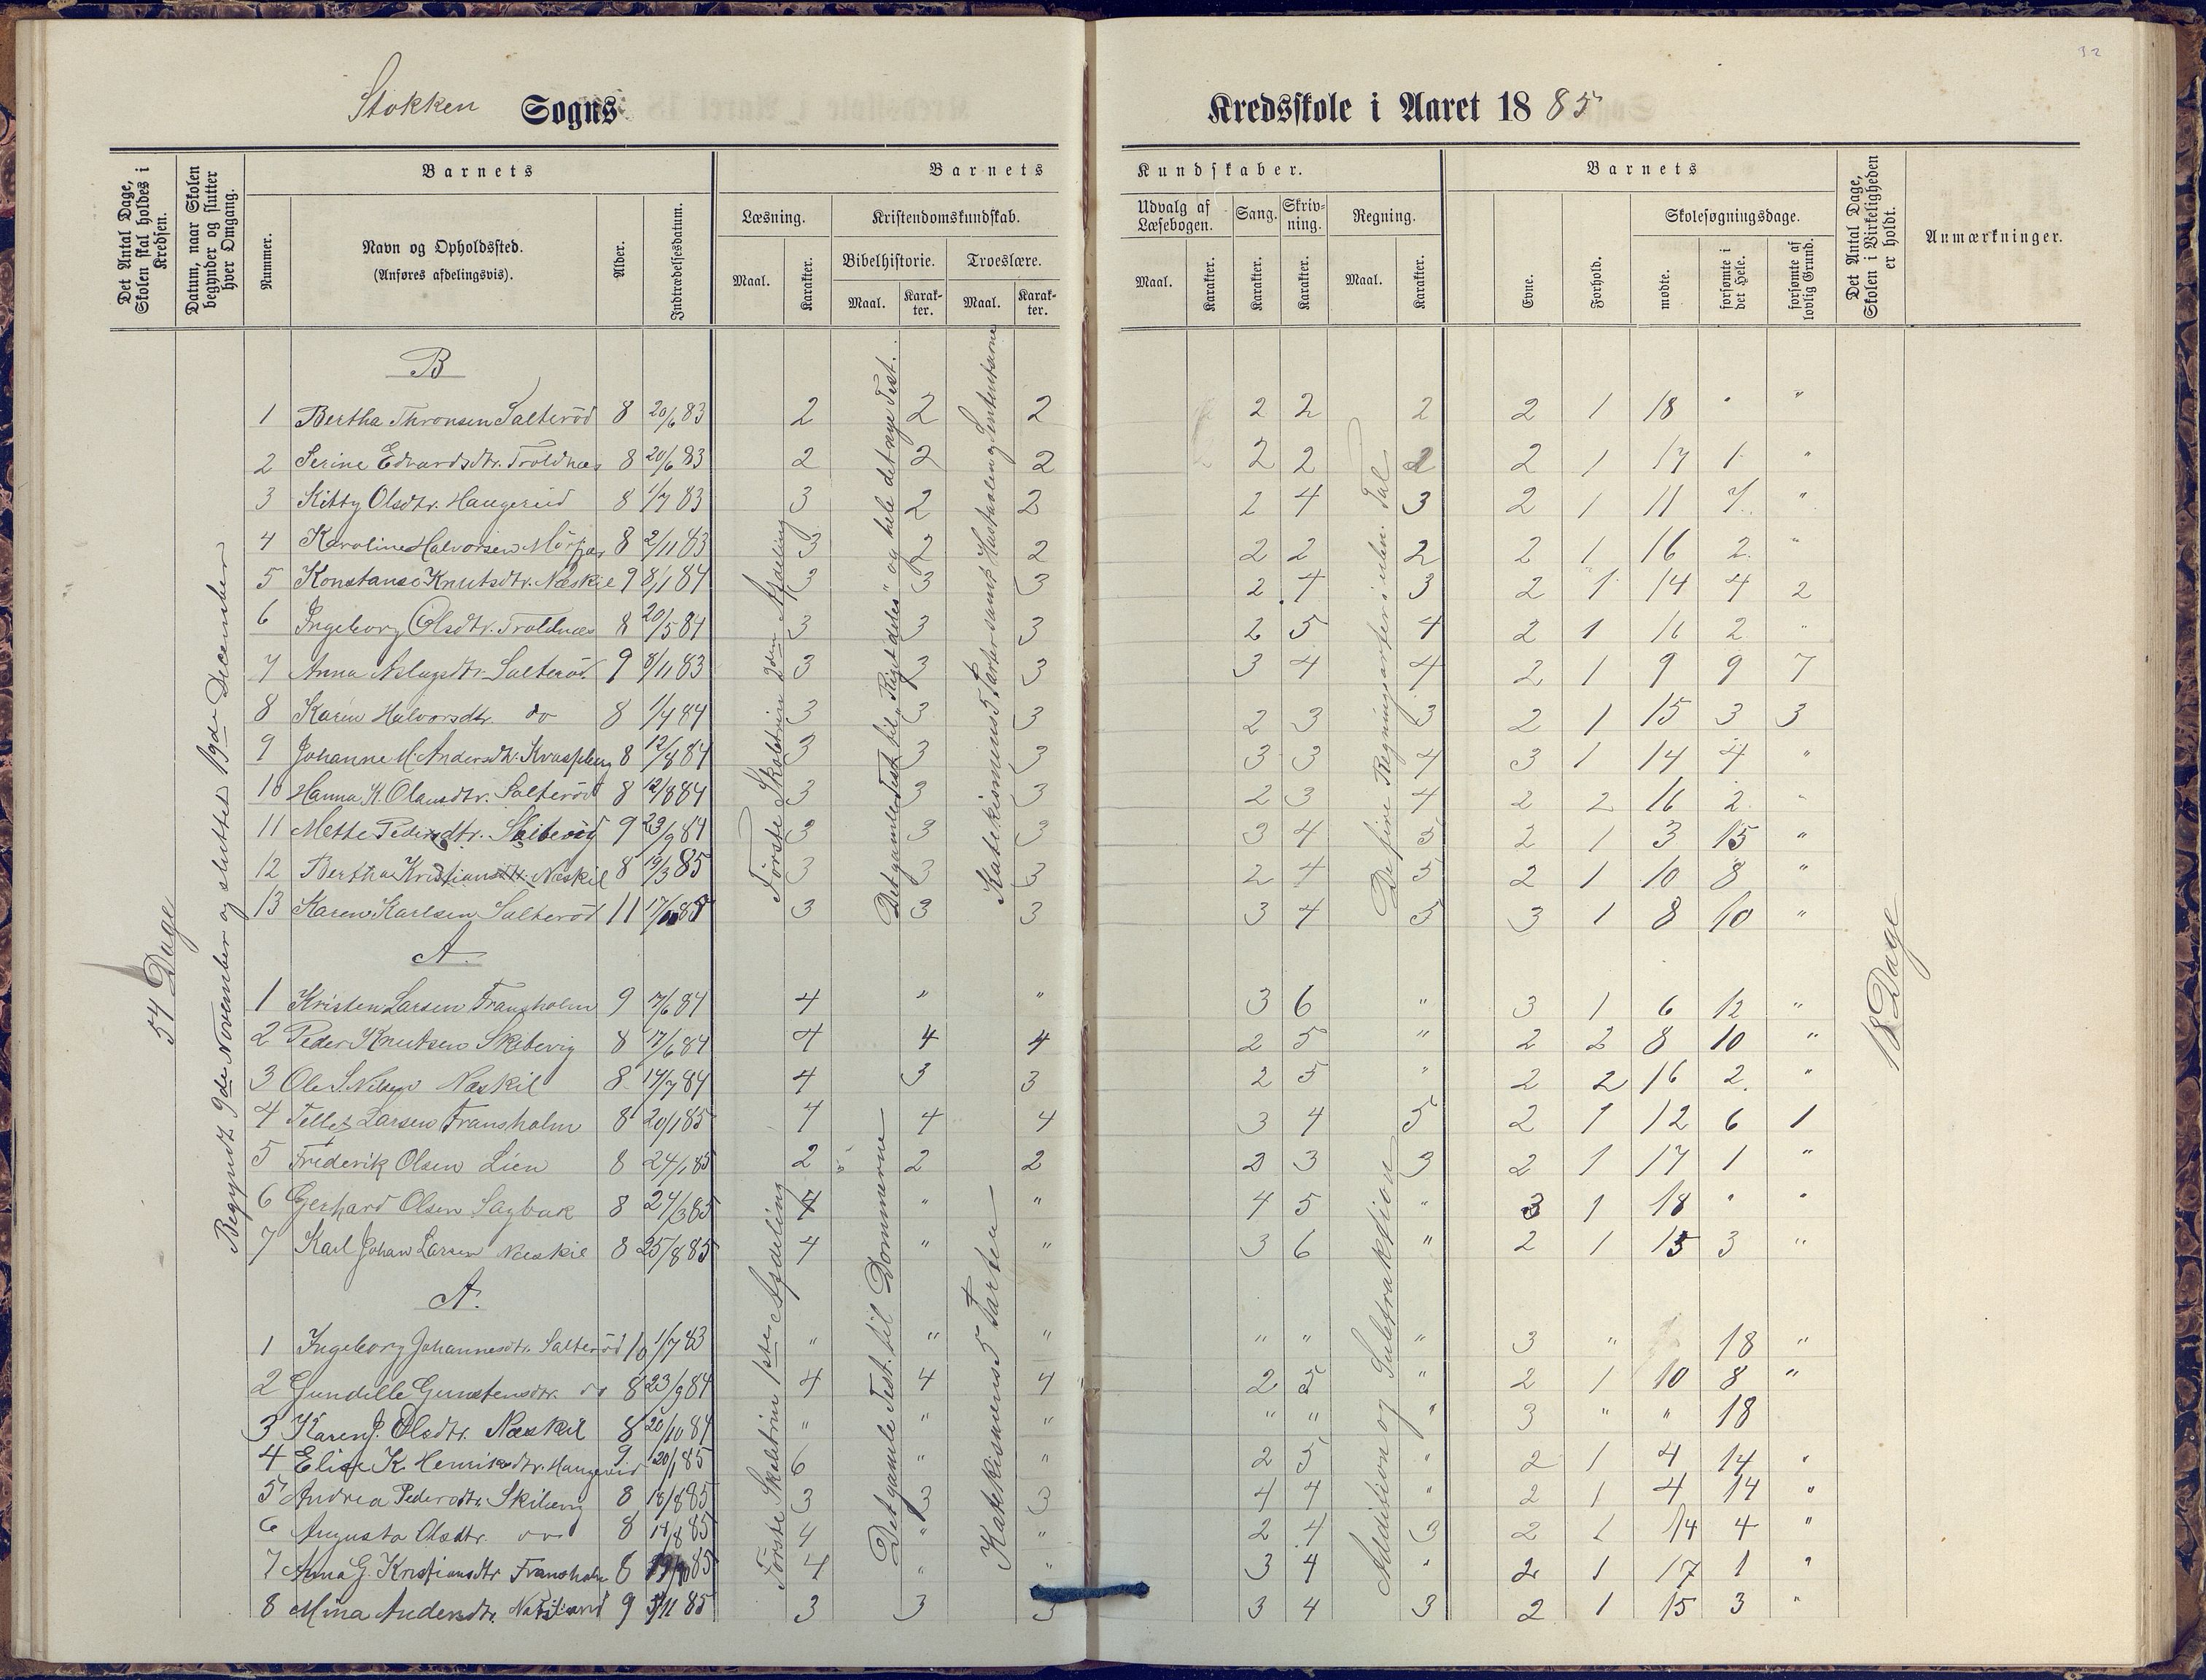 32
Stokken Sogns Kredsskole i Aaret 1885
Det Antal Dage, Skolen skal holdes i Kredsen.
Datum, naar Skolen begynder og slutter hver Omgang.
Barnets
Nummer.
Navn og Opholdssted.
(Anføres afdelingsvis).
Alder.
Indtrædelsesdatum.
Barnets Kundskaber.
Læsning.
Maal. Karakter.
Kristendomskundskab.
Bibelhistorie. Troeslære.
Maal. Karakter. Maal. Karakter.
Udvalg af Læsebogen.
Maal. Karakter.
Sang. Karakter.
Skrivning. Karakter.
Regning.
Maal. Karakter.
Barnets
Evne. Forhold.
Skolesøgningsdage.
mødte. forsømte i det Hele. forsømte af lovlig Grund.
Det Antal Dage, Skolen i Virkeligheden er holdt.
Anmærkninger.
54 Dage
Begyndt 9de November og sluttet 19de December
18 Dage
B
Første Skoletrin 2den Afdeling
Det gamle Test. til "Riget deles" og hele det nye Test.
Katekismens 5 Parter samt Hustavlen og
De fire Regningsarter i uben. Tal
1 Bertha Thronsen Salterød 8 20/6 83 2 2 2 2 2 2 2 1 18 " "
2 Serine Edvardsdtr. Troldnæs 8 20/6 83 2 2 2 2 2 2 2 1 17 1 "
3 Kitty Olsdtr. Haugerud 8 1/7 83 3 2 2 2 4 3 2 1 11 7 "
4 Karoline Halvorsen 8 2/11 83 3 2 2 2 2 2 2 1 16 2 "
5 Konstanse Knutsdtr. Næskil 9 8/1 84 3 3 3 2 4 3 2 1 14 4 2
6 Ingeborg Olsdtr. Troldnæs 8 20/5 84 3 3 3 2 5 4 2 1 16 2 "
7 Anna Aslagsdtr. Salterød 9 8/11 83 3 3 3 3 4 4 2 1 9 9 7
8 Karen Halvorsdtr. do 8 1/4 84 3 3 3 2 3 3 2 1 15 3 3
9 Johanne M. Andersdtr. 8 12/8 84 3 3 3 3 3 4 3 1 14 4 "
10 Hanna K. Olausdtr. Salterød 8 12/8 84 3 3 3 2 3 4 2 2 16 2 "
11 Mette Pedersdtr. Skibevig 9 23/9 84 3 3 3 3 4 5 2 1 3 15 "
12 Bertha Kristiansdtr. Næskil 8 19/3 85 3 3 3 2 4 5 2 1 10 8 "
13 Karen Karlsen Salterød 11 85 3 3 3 3 4 5 3 1 8 10 "
A.
Første Skoletrin 1ste Afdeling
Det gamle Test. til Dommerne
Katekismens 5 Parter
Addition og Subtraktion
1 Kristen Larsen Fransholm 9 17/6 84 4 " " 3 6 " 3 1 6 12 "
2 Peder Knutsen Skibevig 8 17/6 84 4 4 4 2 5 " 2 2 8 10 "
3 Ole S. Nilsen Næskil 8 14/7 84 4 3 3 2 5 " 2 2 16 2 "
4 Tellef Larsen Fransholm 8 20/1 85 4 4 4 3 4 5 2 1 12 6 1
5 Frederik Olsen Lien 8 24/1 85 2 2 2 2 3 3 2 1 17 1 "
6 Gerhard Olsen Sagbak 8 24/3 85 4 " " 4 5 " 3 1 18 " "
7 Karl Johan Larsen Næskil 8 25/8 85 4 " " 3 6 " 2 1 15 3 "
A.
1 Ingeborg Johannesdtr. Salterød 10 1/7 83 " " " " " " 3 " 18 "
2 Gundille Gunstensdtr. do 8 23/9 84 4 4 4 2 5 " 2 1 10 8 "
3 Karen J. Olsdtr. Næskil 8 20/10 84 " " " " " " 3 " " 18
4 Elise K. Henriksdtr. Haugerud 9 20/1 85 6 " " 2 5 " 2 1 4 14 "
5 Andrea Pedersdtr. Skibevig 8 18/8 85 3 3 3 4 4 " 2 1 4 14 "
6 Augusta Olsdtr. do 8 18/8 85 4 " " 2 4 3 2 1 14 4 "
7 Anna G. Kristiansdtr Fransholm 8 85 4 " " 3 4 " 2 1 17 1 "
8 Mina Andersdtr. 9 85 3 3 3 3 4 3 2 1 15 3 "